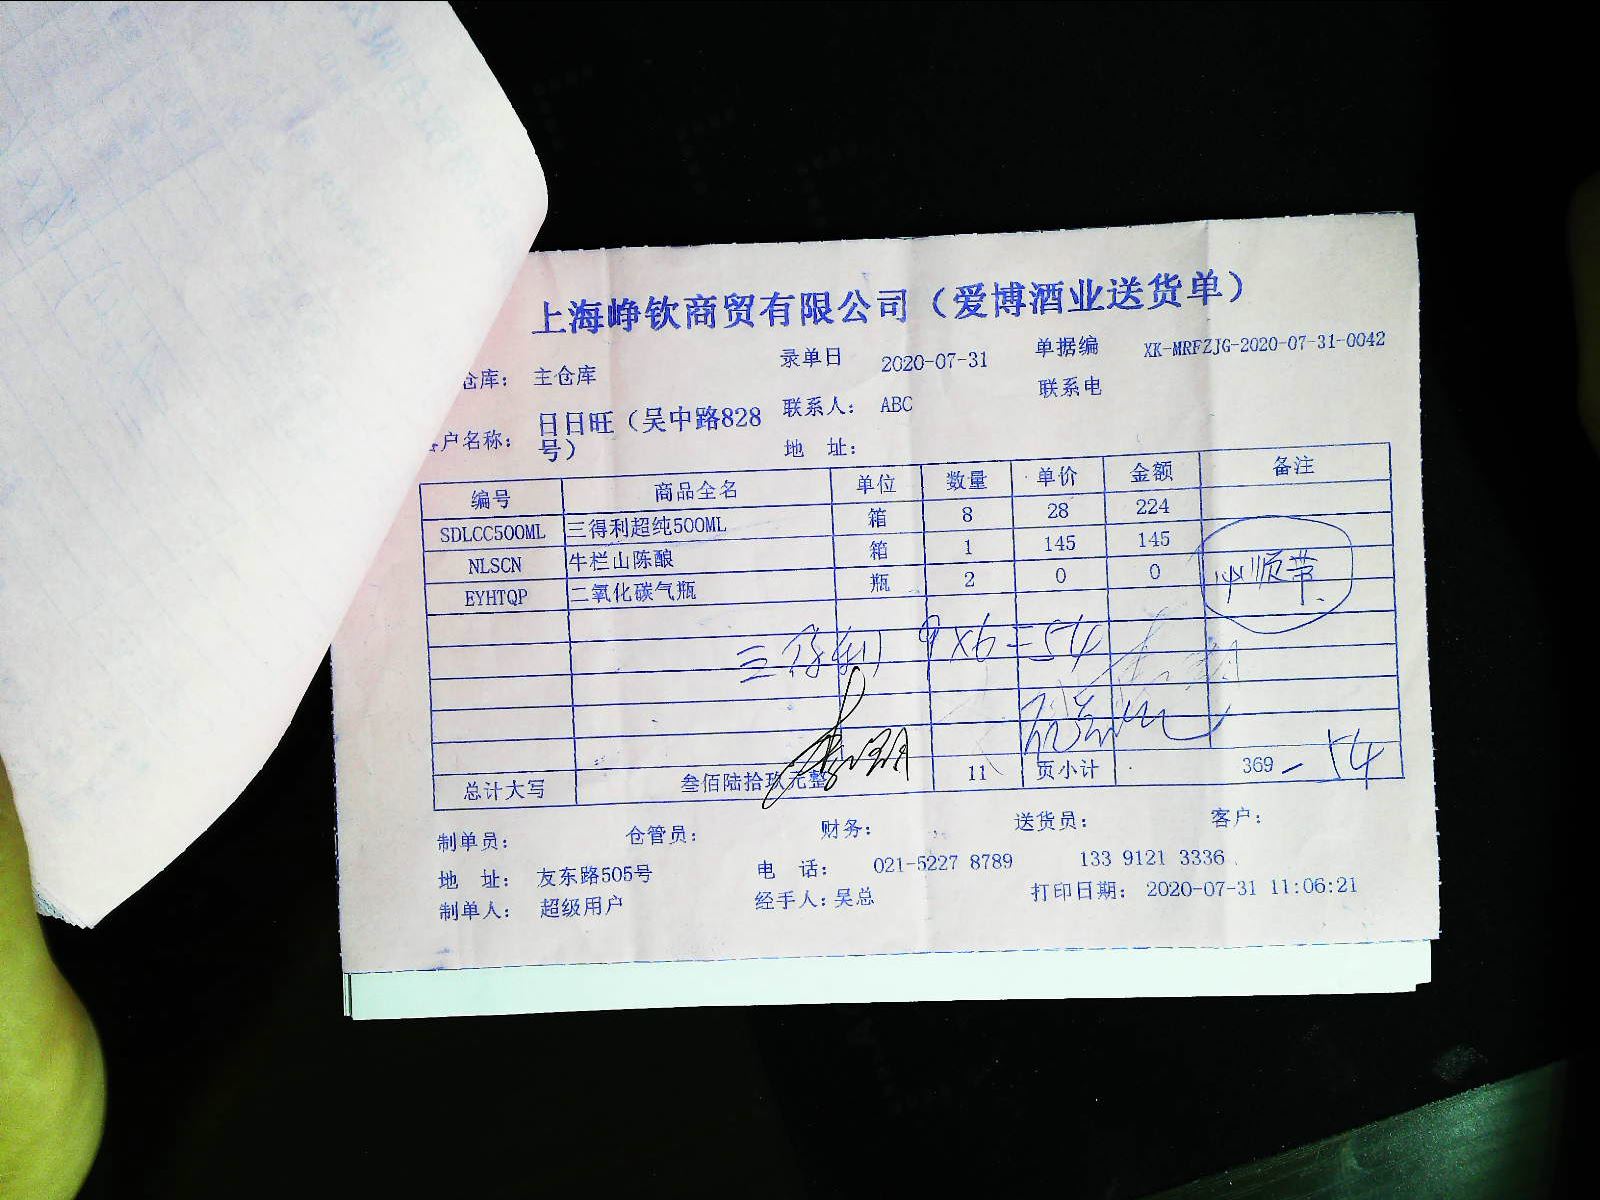 上海峥钦商贸有限公司（爱博酒业送货单）
仓库： 主仓库 录单日 2020-07-31 单据编 XK-MRFZJG-2020-07-31-0042
户名称： 日日旺（吴中路828号） 联系人： ABC 联系电
地 址：
编号 商品全名 单位 数量 单价 金额 备注
SDLCC500ML 三得利超纯500ML 箱 8 28 224
NLSCN 牛栏山陈酿 箱 1 145 145
EYHTQP 二氧化碳气瓶 瓶 2 0 0 顺带
三得利 9×6=54
总计大写 叁佰陆拾玖元整 11 页小计 369 - 54
制单员： 仓管员： 财务： 送货员： 客户：
地 址： 友东路505号 电 话： 021-5227 8789 133 9121 3336
制单人： 超级用户 经手人：吴总 打印日期： 2020-07-31 11:06:21